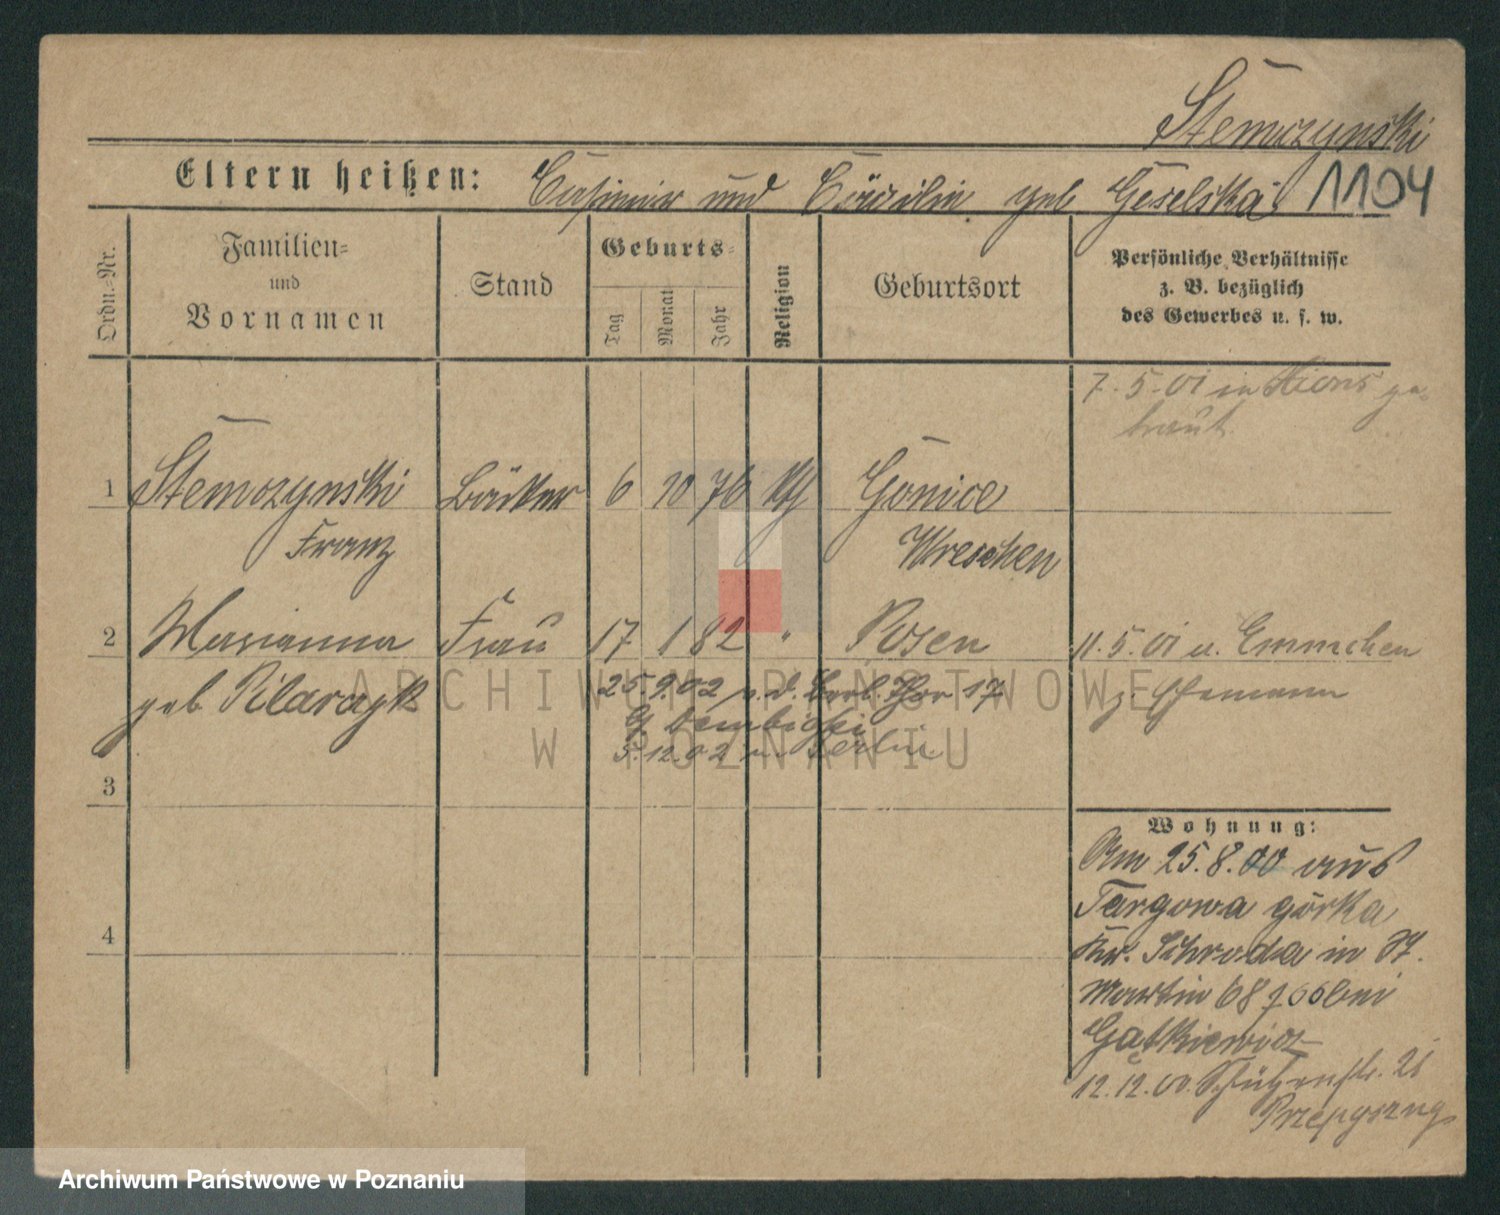 Stemczynski
Eltern heißen: Casimir und Cäcilie geb Geselska 1104
Ordn.-Nr.
Familien-
und
Vornamen
Stand
Geburts-
Tag
Monat
Jahr
Religion
Geburtsort
Persönliche Verhältnisse
z. B. bezüglich
des Gewerbes u. s. w.
7. 5. 01 in ge-
traut.
1 Stemczynski Bäcker 6 10 76 kth Gonice
Franz Wreschen
2 Marianna Frau 17 1 82 " Posen 11. 5. 01 u.
geb Pilarczyk 25. 9. 02 17
z Ehemann
5. 12. 02 Berlin
3
4
Wohnung:
Am 25. 8. 00 aus
Targowa górka
Kr. Schroda in St.
Martin 68 bei
Gątkiewicz
12. 12. 00. Schützenstr. 21
ARCHIWUM PAŃSTWOWE
W POZNANIU
Archiwum Państwowe w Poznaniu